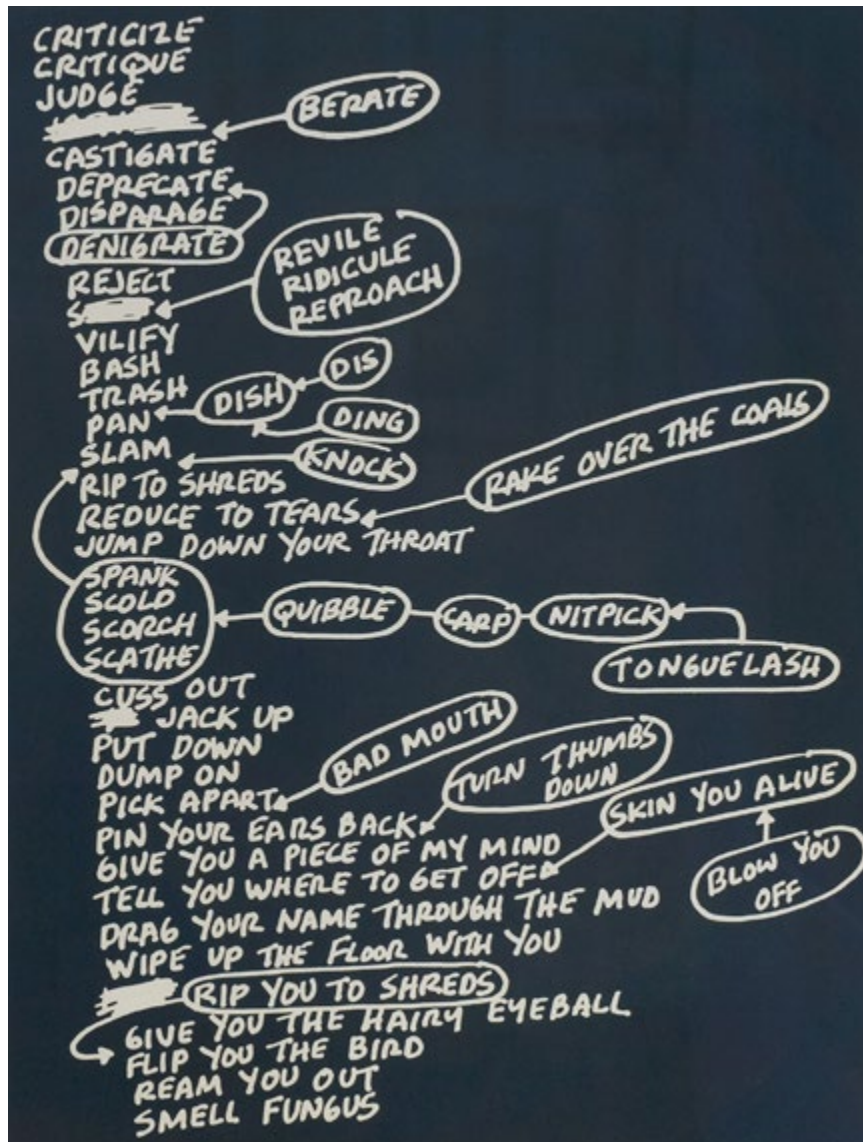 CRITICIZE
CRITIQUE
JUDGE
BERATE
CASTIGATE
DEPRECATE
DISPARAGE
DENIGRATE
REJECT
REVILE
RIDICULE
REPROACH
S
VILIFY
BASH
TRASH
DISH
DIS
PAN
DING
SLAM
KNOCK
RIP TO SHREDS
RAKE OVER THE COALS
REDUCE TO TEARS
JUMP DOWN YOUR THROAT
SPANK
SCOLD
SCORCH
SCATHE
QUIBBLE
CARP
NITPICK
TONGUELASH
CUSS OUT
JACK UP
PUT DOWN
DUMP ON
PICK APART
BAD MOUTH
PIN YOUR EARS BACK
TURN THUMBS
DOWN
GIVE YOU A PIECE OF MY MIND
TELL YOU WHERE TO GET OFF
SKIN YOU ALIVE
BLOW YOU
OFF
DRAG YOUR NAME THROUGH THE MUD
WIPE UP THE FLOOR WITH YOU
RIP YOU TO SHREDS
GIVE YOU THE HAIRY EYEBALL
FLIP YOU THE BIRD
REAM YOU OUT
SMELL FUNGUS